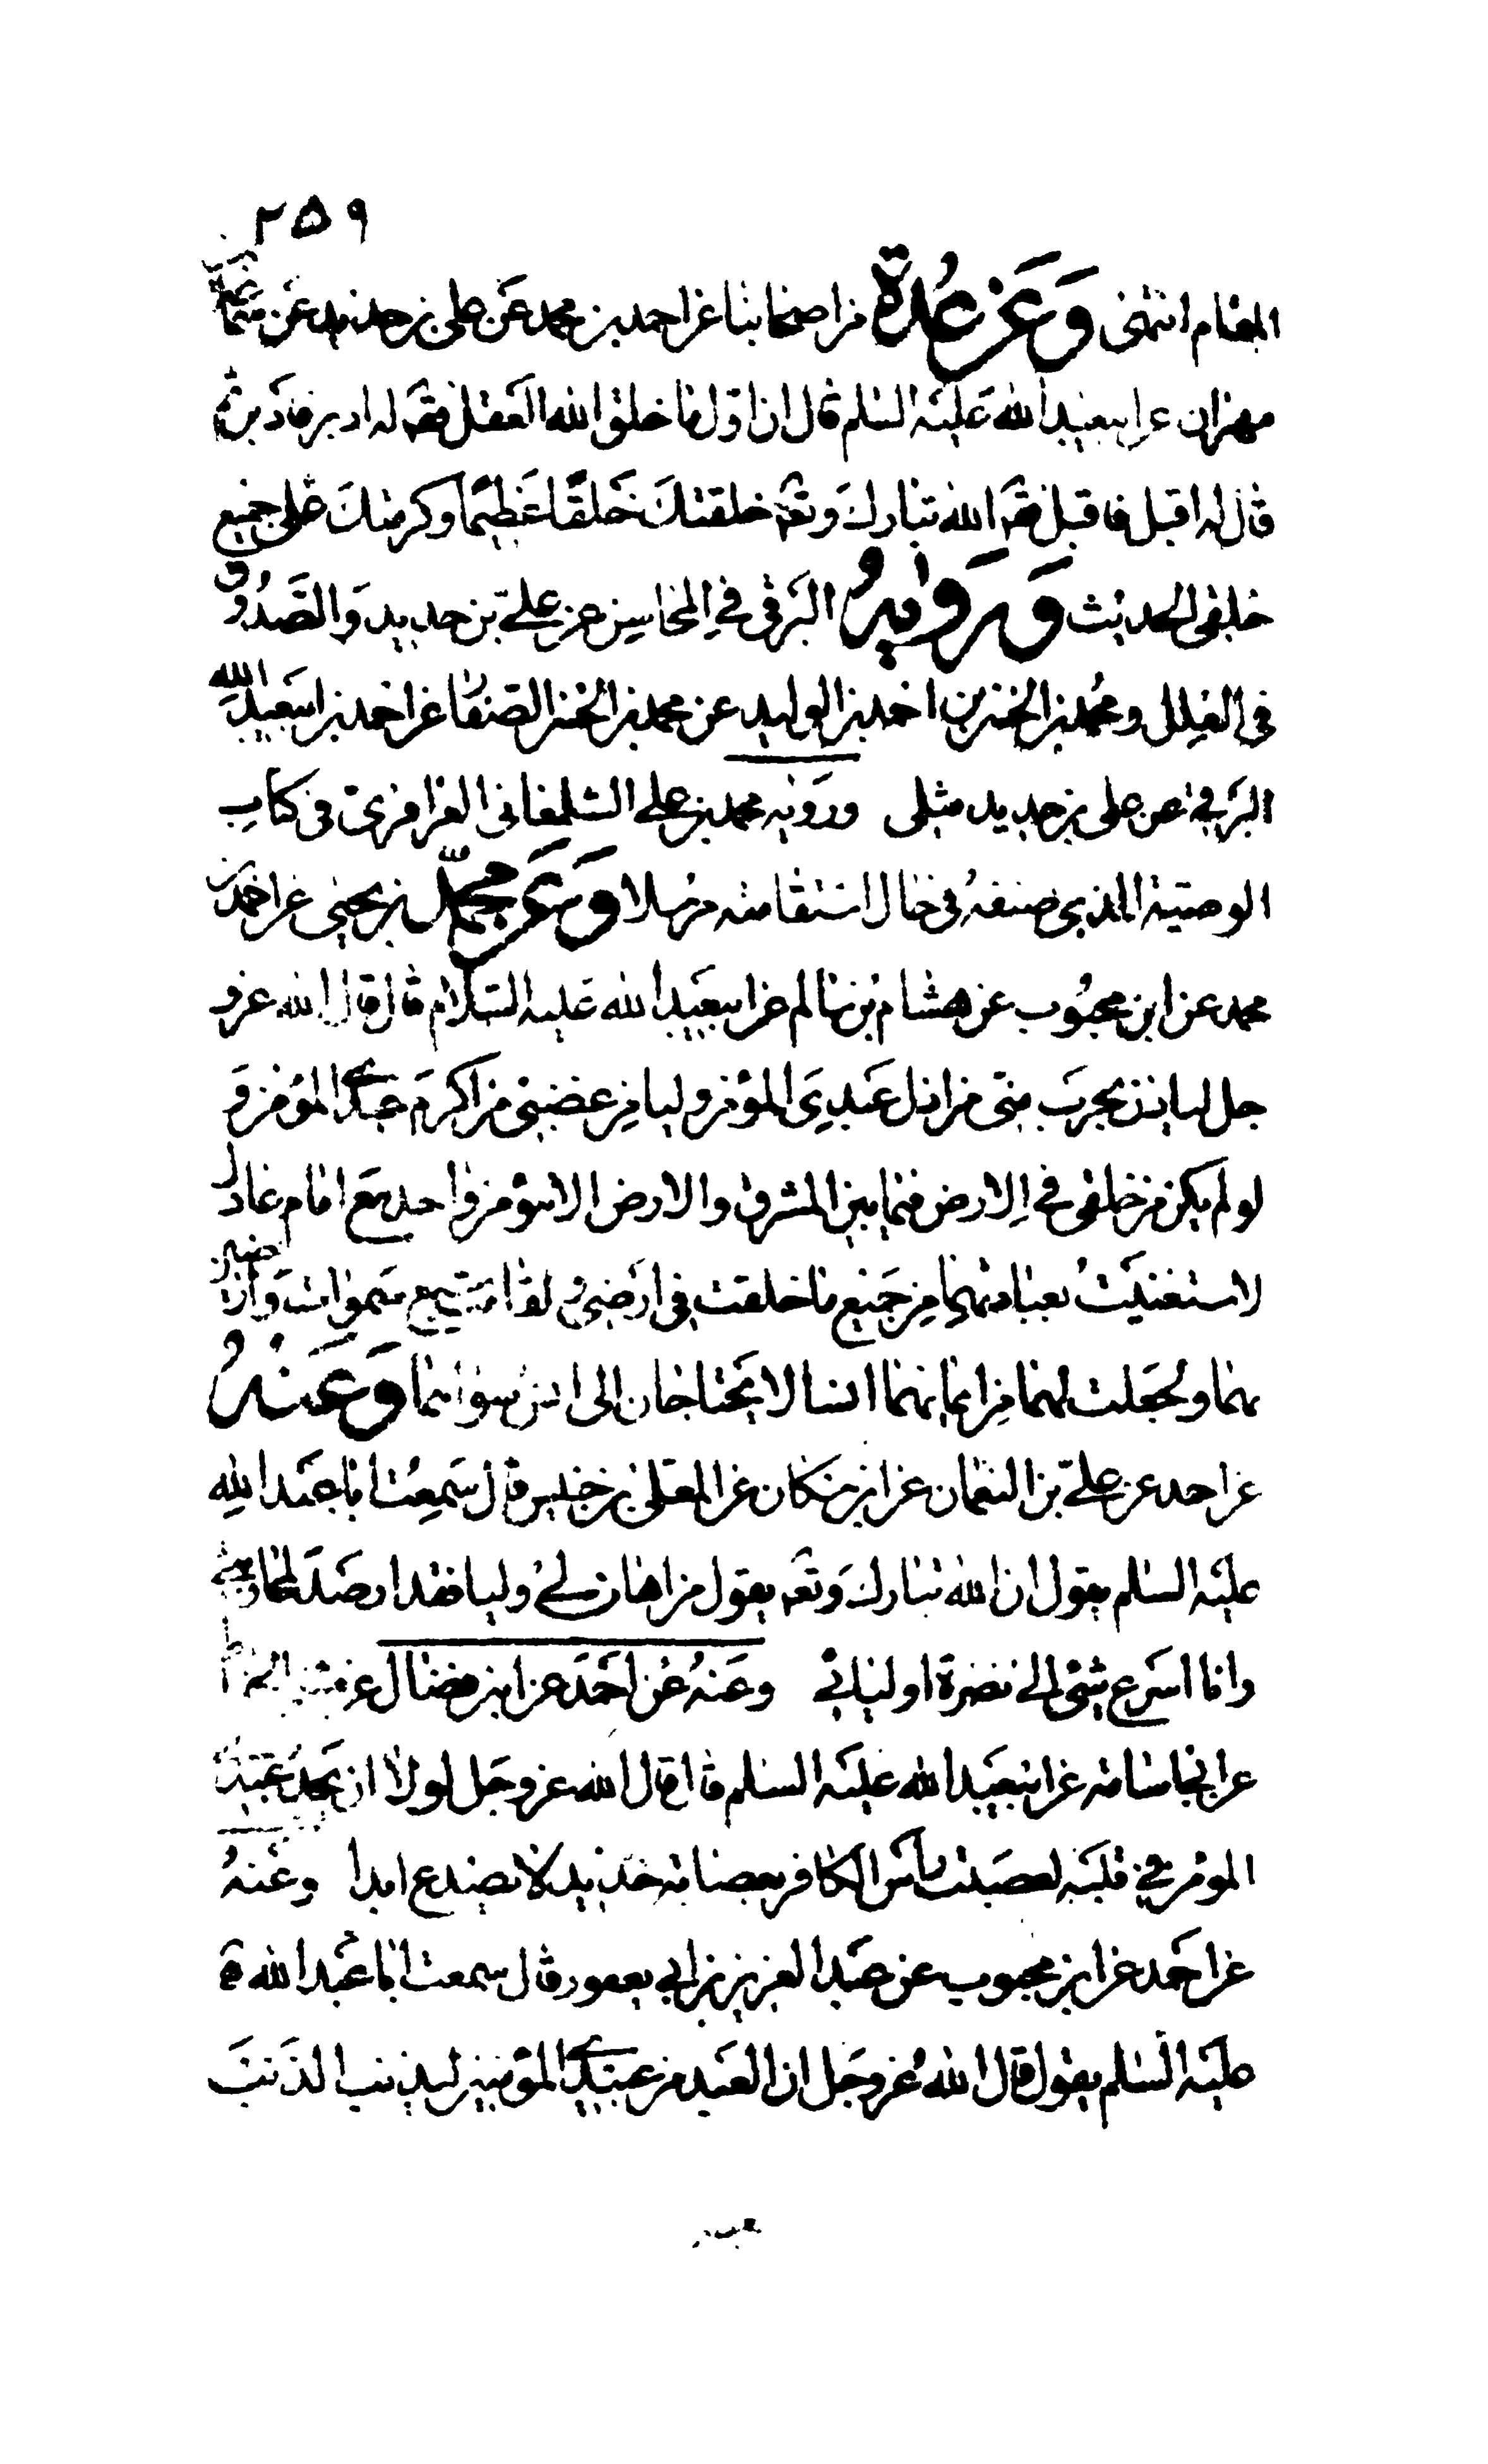 ٢۵٩
المقام انتهى وعن عدة من اصحابنا عن احمد بن محمد عن على بن حديد عن سماعة بن
مهران عن ابيعبد الله عليه السلم قال ان اول ما خلق الله العقل فقه له ادبر فادبر ثم
قال له اقبل فاقبل فقه الله تبارك وتعه خلقتك خلقا عظيما وكرمتك على جميع
خلقى الحديث ورواه البرقى في المحاسن عن علي بن حديد والصدوق
فى العلل ومحمد بن الحسن بن احمد بن الوليد عن محمد بن الحسن الصفار عن احمد بن ابيعبد الله
البرقى عن على بن حديد مثله ورويه محمد بن علي الشلمغانى العزاقرى فى كتاب
الوصية الذى صنفه فى حال استقامته مرسلا وعن محمد بن يحيى عن احمد بن
محمد عن ابن محبوب عن هشام بن سالم عن ابيعبد الله عليه السلام قال قال الله عز و
جل لياذن بحرب منى من اذل عبدى المؤمن وليامن غضبى من اكرم عبدى المؤمن و
لو لم يكن من خلقى في الارض فيما بين المشرق والارض الا مؤمن واحد مع امام عادل
لاستغنيت بعبادتهما من جميع ما خلقت فى ارضى ولقامت سبع سموات وارضين
بهما ولجعلت لهما من ايمانهما انسا لا يحتاجان الى انس سواهما وعنه
عن احمد عن علي بن النعمان عن ابن مسكان عن المعلى بن خنيس قال سمعت ابا عبد الله
عليه السلم يقول ان الله تبارك وتعه يقول من اهان لي وليا فقد ارصد لمحاربتى
وانا اسرع شئ الى نصرة اوليائي وعنه عن احمد عن ابن فضال عن مثنى الحناط
عن ابى اسامة عن ابيعبد الله عليه السلم قال قال الله عز وجل لولا ان يجد عبدى
المؤمن في قلبه لعصبت راس الكافر بعصابة حديد لا يصدع ابدا وعنه
عن احمد عن ابن محبوب عن عبد العزيز بن ابي يعفور قال سمعت ابا عبد الله
عليه السلم يقول قال الله عز وجل ان العبد من عبيدى المؤمنين ليذنب الذنب